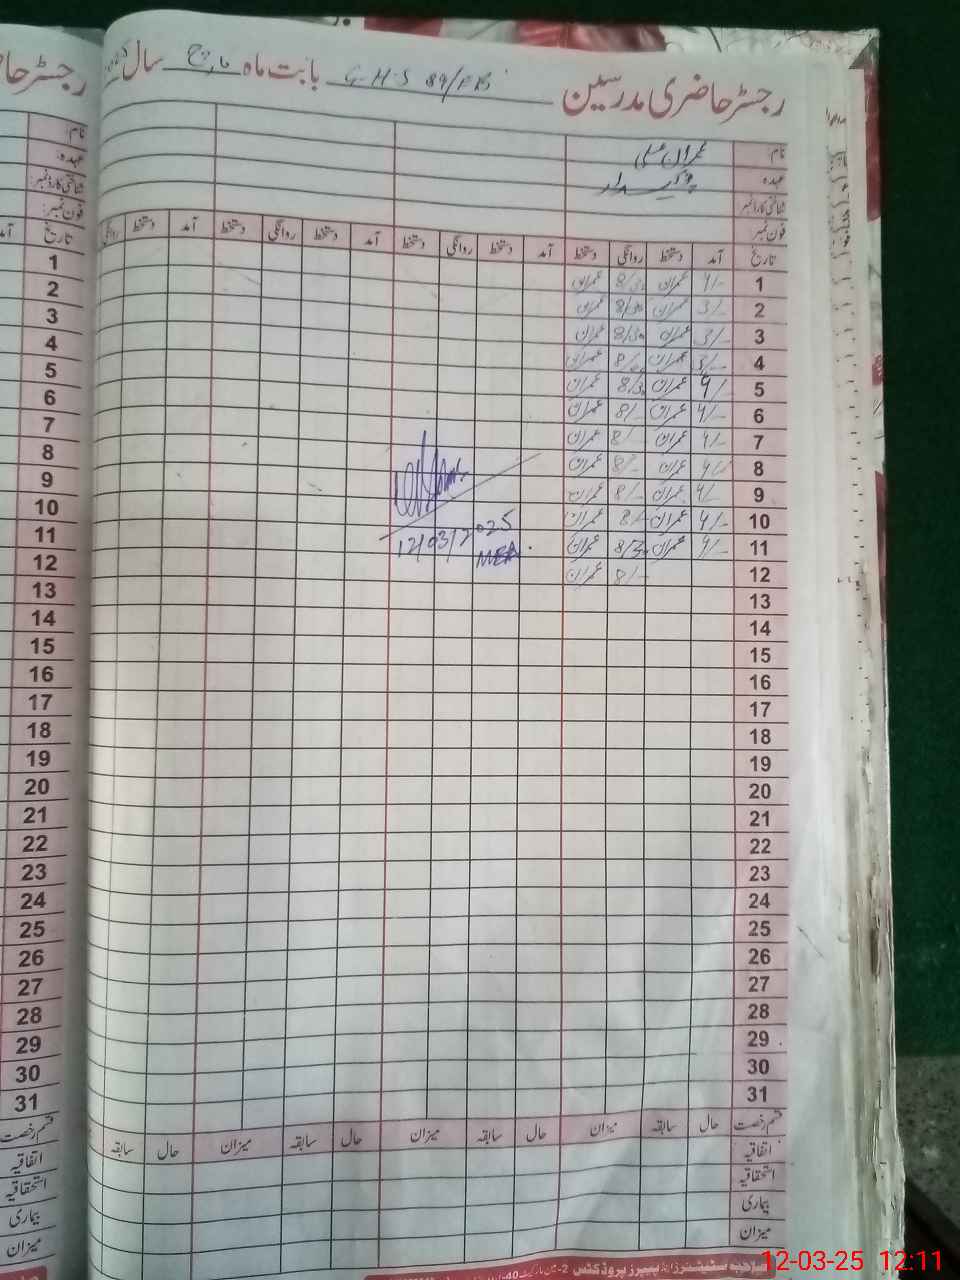 رجسٹر حاضری مدرسین G.H.S 89/FB بابت ماہ مارچ سال 2025
نام: عمران علی
عہدہ چوکیدار
شناختی کارڈ نمبر:
فون نمبر:
تاریخ آمد دستخط روانگی دستخط آمد دستخط روانگی دستخط آمد دستخط روانگی دستخط آمد دستخط روانگی
1 4/- عمران 8/30 عمران
2 3/- عمران 8/30 عمران
3 3/- عمران 8/30 عمران
4 3/- عمران 8/ عمران
5 4/ عمران 8/30 عمران
6 4/- عمران 8/- عمران
7 4/- عمران 8/- عمران
8 4/- عمران 8/- عمران
9 4/- عمران 8/- عمران
10 4/- عمران 8/- عمران
11 4/- عمران 8/30 عمران
12 8/- عمران
12/03/2025
MEA
13
14
15
16
17
18
19
20
21
22
23
24
25
26
27
28
29
30
31
قسم رخصت حال سابقہ میزان حال سابقہ میزان حال سابقہ میزان حال سابقہ
اتفاقیہ
استحقاقیہ
بیماری
میزان
رجسٹر حاضری
نام:
عہدہ:
شناختی کارڈ نمبر:
فون نمبر:
تاریخ آمد
1
2
3
4
5
6
7
8
9
10
11
12
13
14
15
16
17
18
19
20
21
22
23
24
25
26
27
28
29
30
31
قسم رخصت
اتفاقیہ
استحقاقیہ
بیماری
میزان
12-03-25 12:11